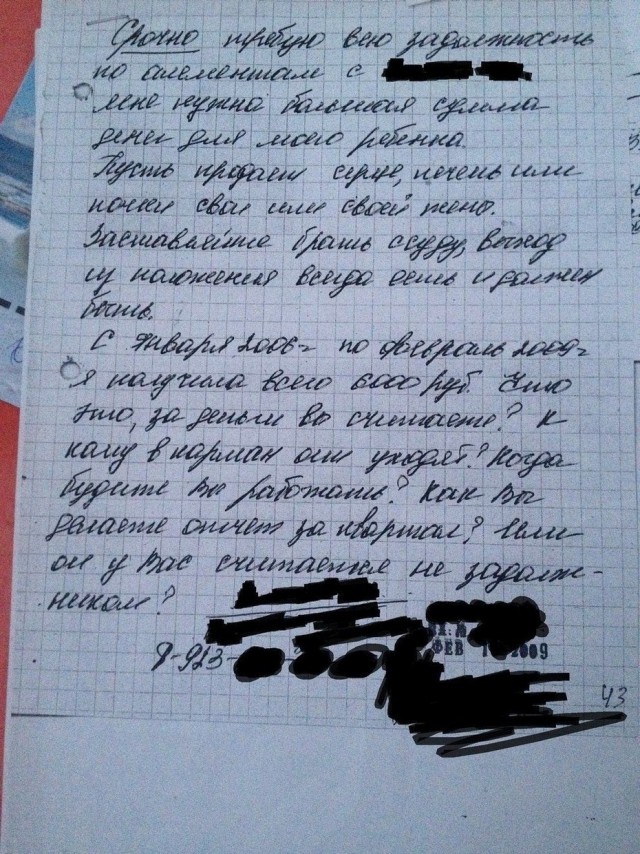 Срочно требую всю задолжность
по алементам с
мне нужна большая сумма
денег для моего ребенка.
Пусть продает сердце, печень или
почки свои или своей жены.
Заставляйте брать ссуду, выход
из положения всегда есть и должен
быть.
С января 2006г по февраль 2009г
я получила всего 6000 руб. Что
это, за деньги вы считаете? К
кому в карман они уходят? Когда
будите Вы работать? Как Вы
делаете отчет за квартал? Или
он у Вас считается не задолж-
ником?
8-923-
ФЕВ 2009
43